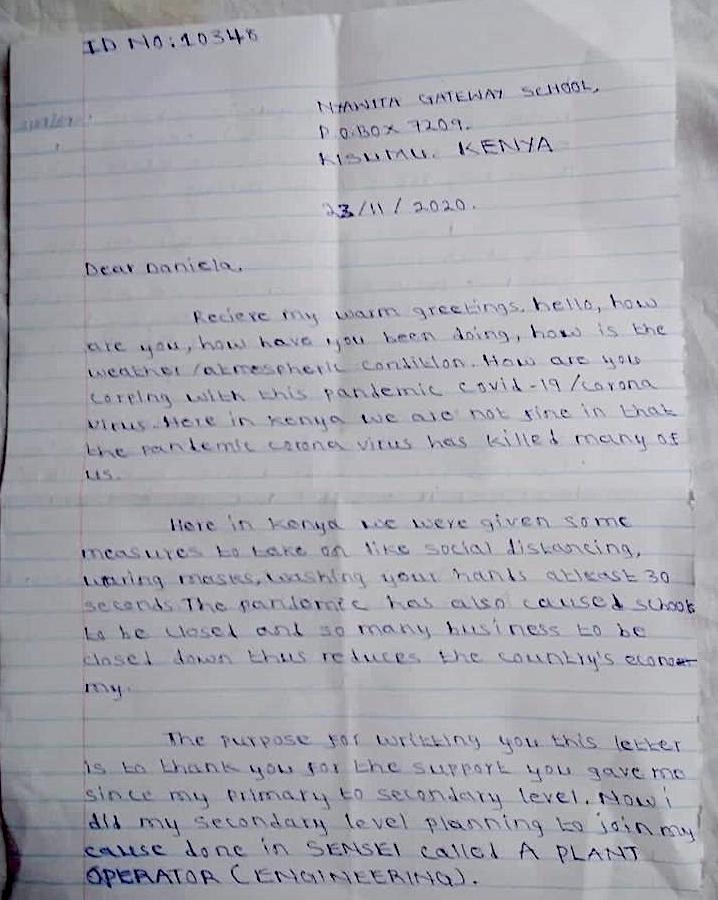 ID NO: 10348
NYAWITA GATEWAY SCHOOL,
P.O.BOX 7209.
KISUMU. KENYA
23/11/2020.
Dear Daniela,
Recieve my warm greetings. hello, how
are you, how have you been doing, how is the
weather/atmespheric condition. How are you
corping with this pandemic covid-19/corona
virus. Here in Kenya we are not fine in that
the pandemic corona virus has killed many of
us.
Here in Kenya we were given some
measures to take on like social distancing,
waring masks, washing your hands atleast 30
seconds. The pandemic has also caused schools
to be closed and so many business to be
closed down thus reduces the country's econo
my.
The purpose for writting you this letter
is to thank you for the support you gave me
since my primary to secondary level. Now i
did my secondary level planning to join my
cause done in SENSEI called A PLANT
OPERATOR (ENGINEERING).